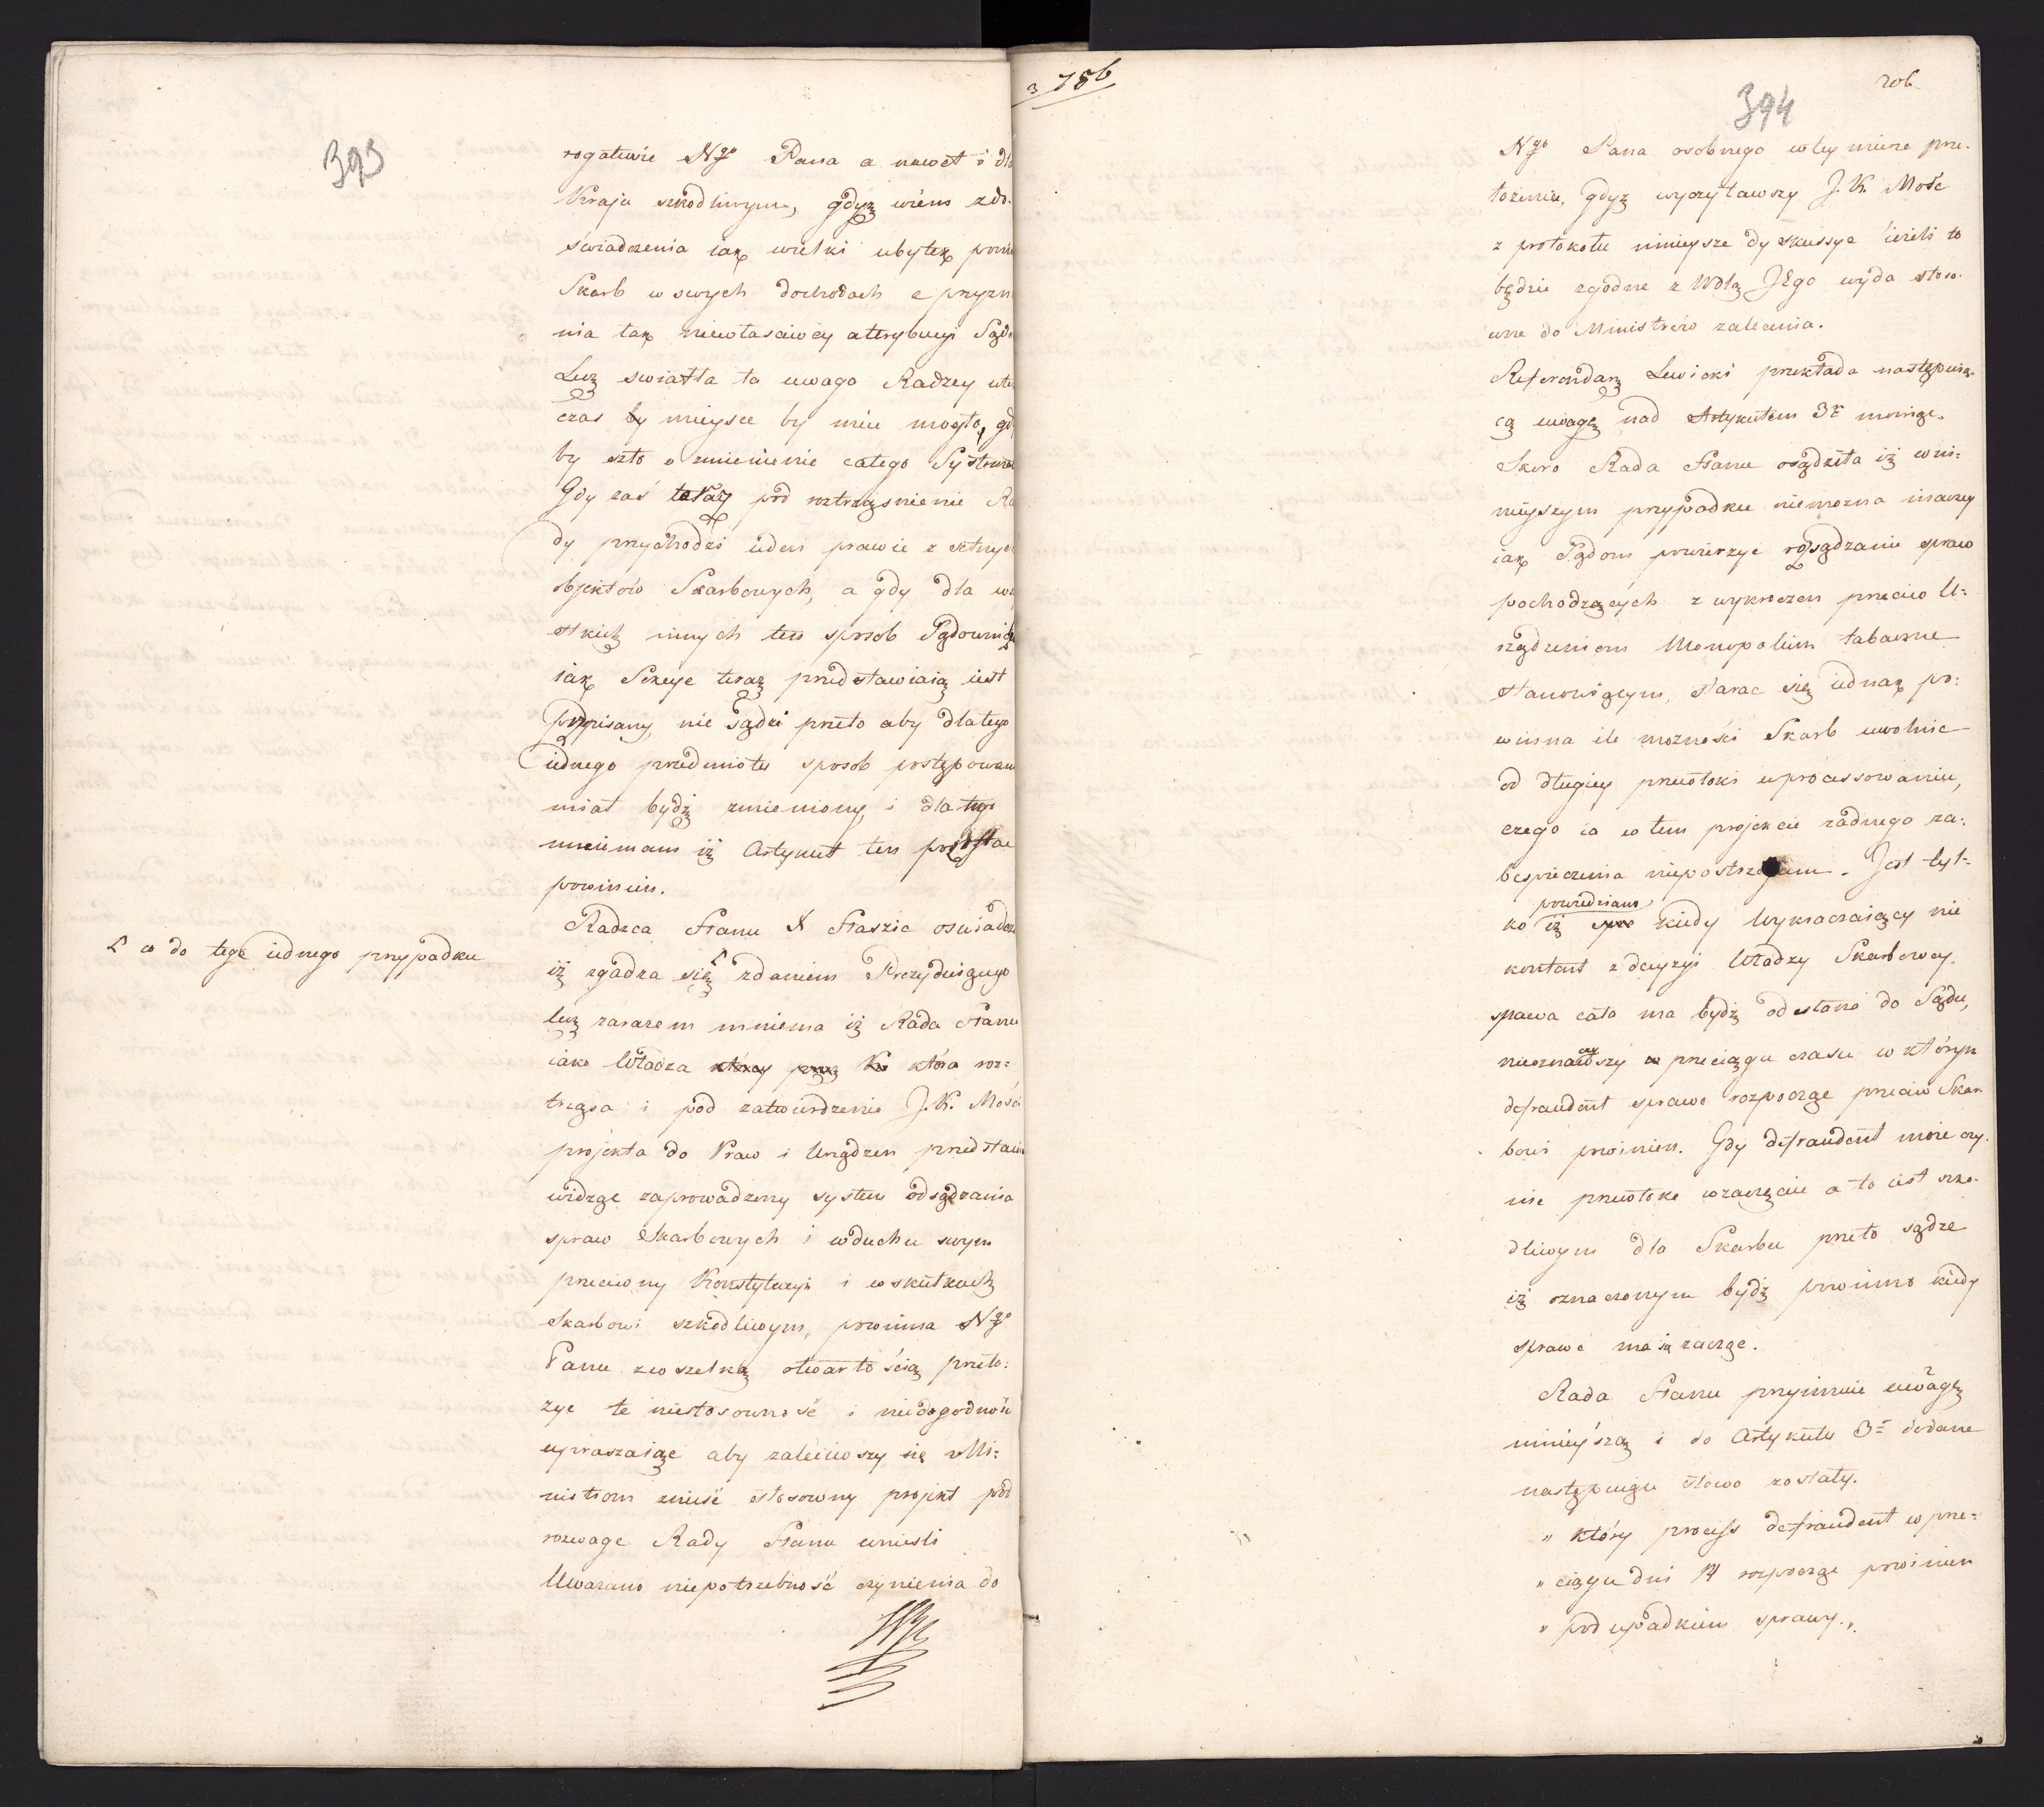 393
rogatiwie Nygo Pana a nawet i dla
Kraju szkodliwym, gdyż wiem z do-
świadczenia iak wielki ubytek
Skarb w swych dochodach z przyzn
nia tak niewłasciwey attrybucyi Sądo
Lecz swiatła ta uwaga Radzcy
czas by mieysce by mieć mogła, gd
by szło o zmienienie całego Systema
Gdy zaś teraz pod roztrząsnienie Ra
dy przychodzi ieden prawie z setnych
objektów Skarbowych, a gdy dla
stkich innych ten sposob Sądownic
iak Sekcye teraz przedstawiaią iest
przepisany, nie sądzi przeto aby dla tego
iednego przedmiotu sposob postępowan
miał bydź zmieniony, i dla tego
mniemam iż Artykuł ten pozostac
powinien.
Radzca Stanu X Staszic osiadcza
iż zgadza się zdaniem Prezyduiącego
L co do tego iednego przypadku
lecz zarazem mniema iż Rada Stanu
iako Władza która roz=
trząsa i pod zatwierdzenie J. K. Mości
projekta do Praw i Urządzen przedstawia
widząc zaprowadzony system odsądzania
spraw Skarbowych i w duchu swym
przeciwny Konstytucyi i w skutkach
Skarbowi szkodliwym, powinna Nygo
Panu z wszelką otwartością przeło=
życ te niestosowność i niedogodność
upraszaiąc aby zaleciwszy się Mi=
nistrom znieść stosowny projekt pod
rozwagę Rady Stanu wnieśli
Uważano niepotrzebność czynienia do
3 786
394
206
Nygo Pana osobnego w tey mierze prze-
łożenia, gdyż wyczytawszy J. K. Mość
z protokołu ninieysze dyskussye ieżeli to
będzie zgodne z Wolą JEgo wyda stoso-
wne do Ministrów zalecenia.
Referendarz Lewicki przekłada następuią-
cą uwagę nad Artykułem 3m mowiąc.
Skoro Rada Stanu osądziła iż w ni=
nieyszym przypadku niemożna inaczey
iak Sądom powierzyc rozsądzanie spraw
pochodzących z wykroczen przeciw U=
rządzeniom Monopolium tabaczne
stanowiącym, starac się iednak po=
winna ile możności Skarb uwolnic
od długiey przewłoki w processowaniu,
czego ia w tem projekcie żadnego za=
bespieczenia niepostrzegam. Jest tyl=
powiedziano
ko iż kiedy Wykraczaiący nie
kontent z decyzyi Władzy Skarbowey.
sprawa cała ma bydź odesłana do Sądu,
nieoznaczywszy przeciągu czasu w którym
defraudant sprawe rozpocząc przeciw Skar
bowi powinien. Gdy defraudant może czy-
nic przewłokę w zaczęciu a to iest szko-
dliwym dla Skarbu przeto sądzę
iż oznaczonym bydź powinno kiedy
sprawę ma się zacząc.
Rada Stanu przyimuie uwagę
ninieyszą i do Artykułu 3= dodane
następuiące słowa zostały.
„ który process defraudant w prze=
„ ciągu dni 14 rozpocząc powinien
„ pod upadkiem sprawy.„